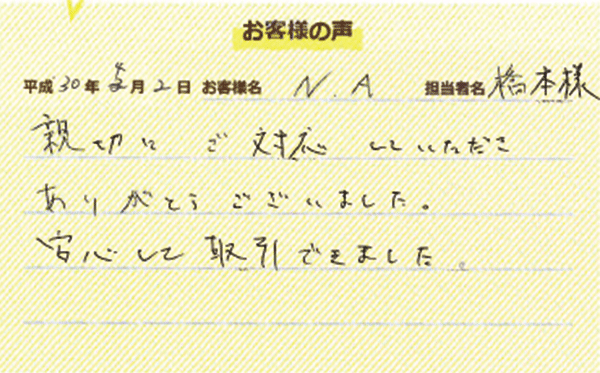 お客様の声
平成30年4月2日 お客様名 N.A 担当者名 橋本様
親切に ご対応 していただき
ありがとうございました。
安心して取引できました。